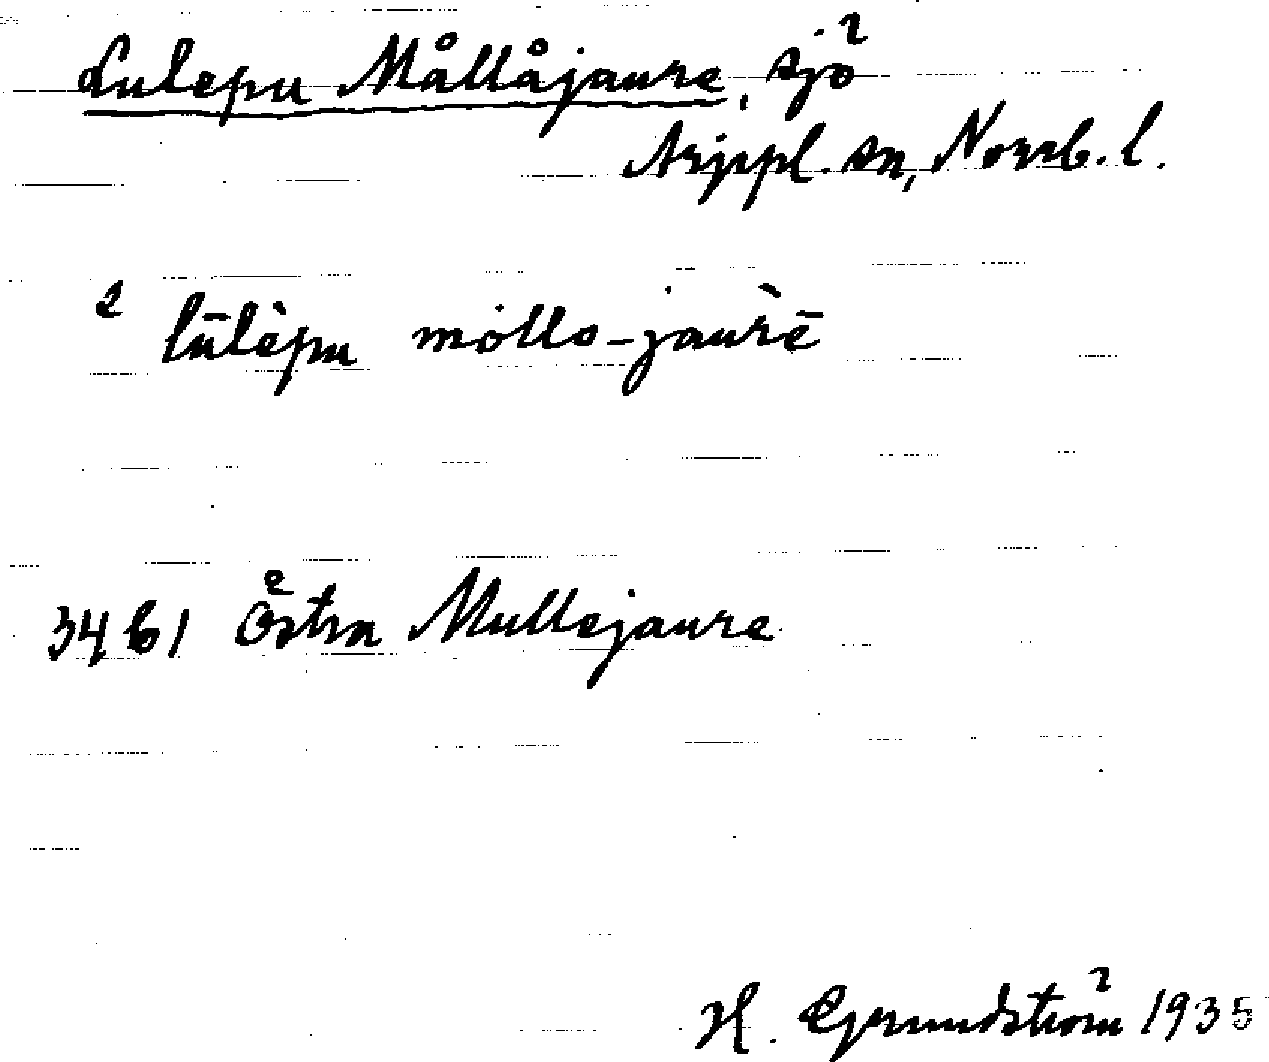 Lulepu Mållåjaure, sjö
Arjepl. sn, Norrb. l.
lūlèpu mållo-jaùrē
3461 Östra Mullejaure
H. Grundström 1935